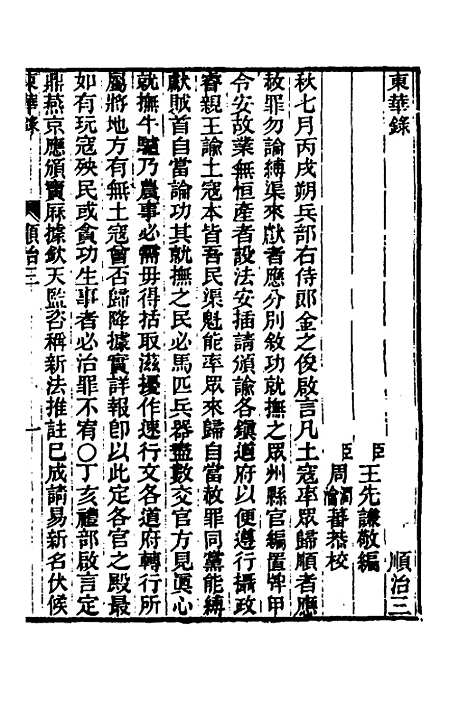 東華錄　順治三
臣王先謙敬編
臣周潤蕃周瀹蕃恭校
秋七月丙戌朔兵部右侍郎金之俊啟言凡土寇率眾歸順者應
赦罪勿論縛渠來獻者應分別敘功就撫之眾州縣官編置牌甲
令安故業無恒產者設法安插請頒諭各鎮道府以便遵行攝政
睿親王諭土寇本皆吾民渠魁能率眾來歸自當赦罪同黨能縛
獻賊首自當論功其就撫之民必馬匹兵器盡數交官方見眞心
就撫牛驢乃農事必需毋得括取滋擾作速行文各道府轉行所
屬將地方有無土寇曾否歸降據實詳報卽以此定各官之殿最
如有玩寇殃民或貪功生事者必治罪不宥〇丁亥禮部啟言定
鼎燕京應頒寶厤據欽天監咨稱新法推註已成請易新名伏候
東華錄　順治三　一